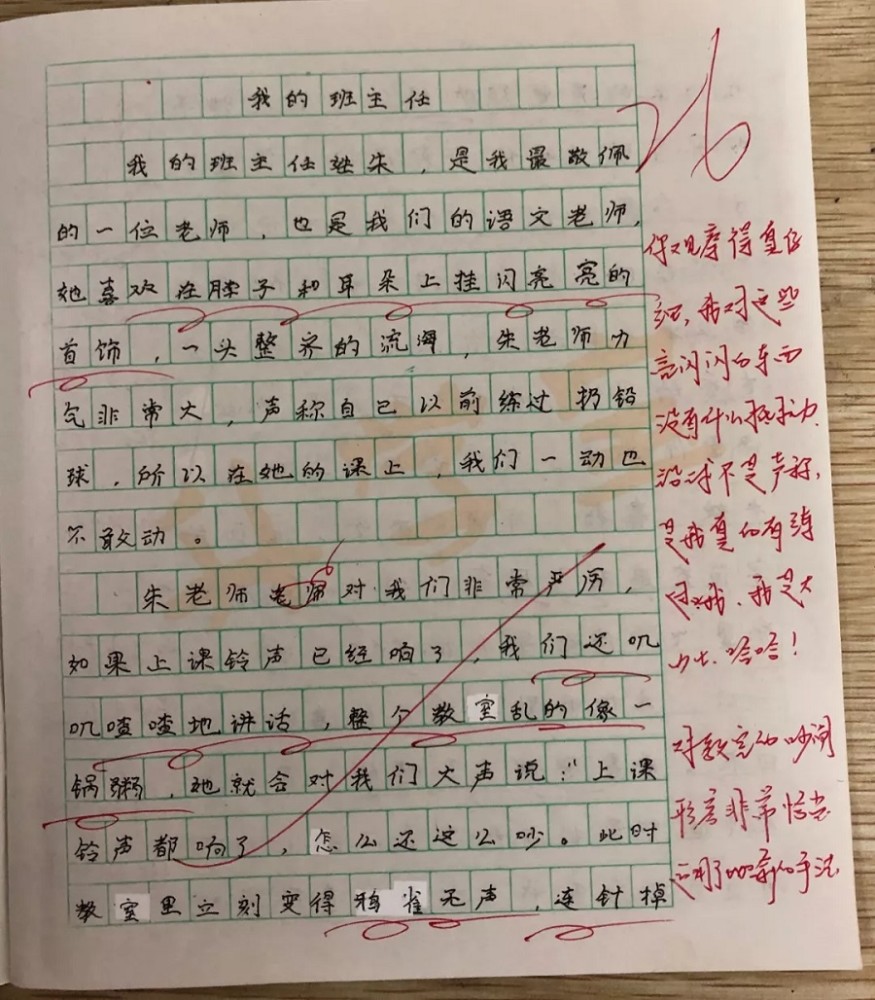 我的班主任
26
我的班主任姓朱，是我最敬佩
的一位老师，也是我们的语文老师，
她喜欢在脖子和耳朵上挂闪亮亮的
首饰，一头整齐的流海，朱老师力
气非常大，声称自己以前练过扔铅
球，所以在她的课上，我们一动也
不敢动。
朱老师老师对我们非常严厉，
如果上课铃声已经响了，我们还叽
叽喳喳地讲话，整个教室乱的像一
锅粥，她就会对我们大声说：“上课
铃声都响了，怎么还这么吵。此时
教室里立刻变得鸦雀无声，连针掉
你观察得真仔
细，我对这些
亮闪闪的东西
没有什么抵抗力，
没错不是声称，
是我真的有练
过哦，我是大
力士，哈哈！
对教室的吵闹
形容非常恰当
运用了比喻的手法